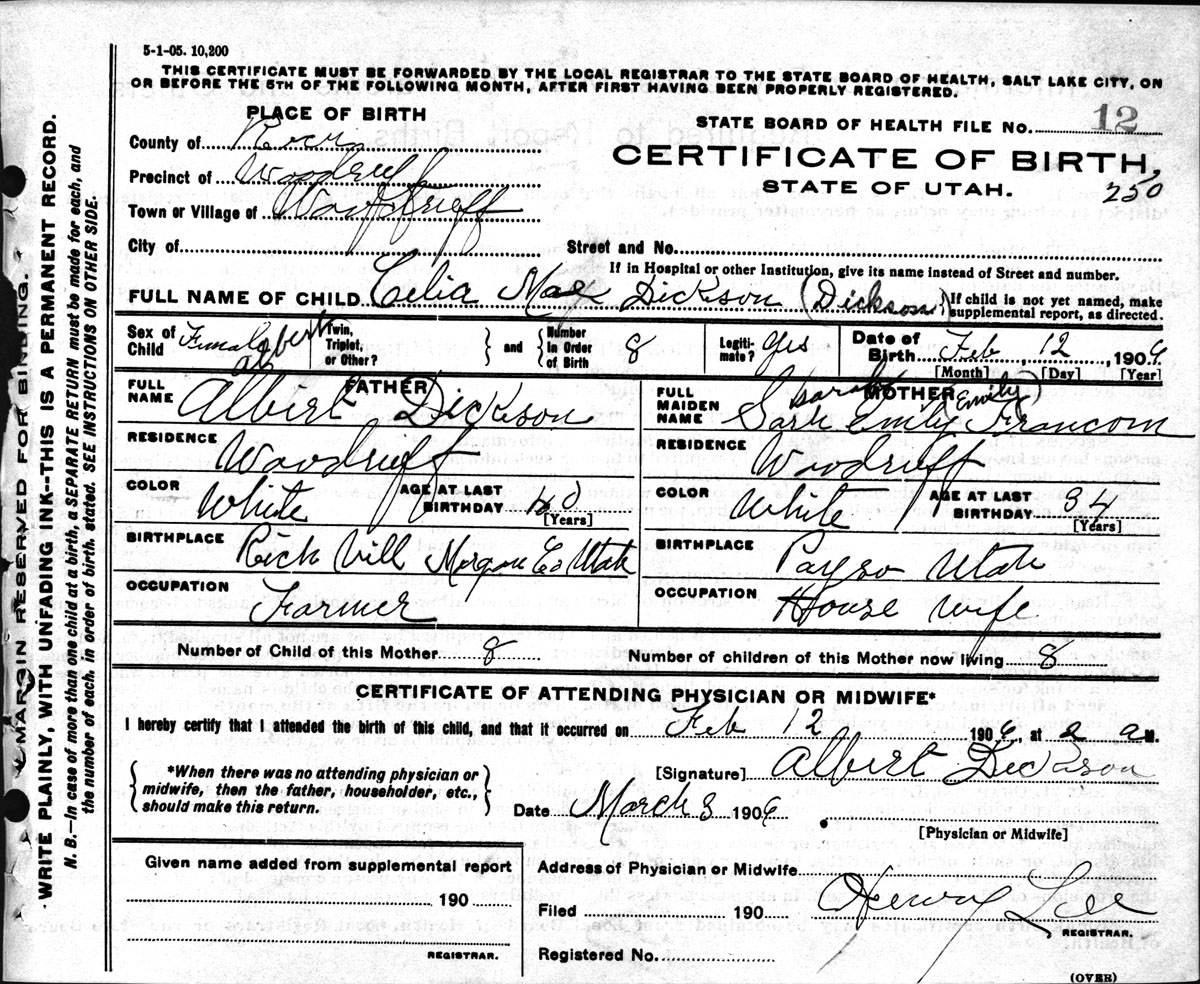 5-1-05. 10,200
THIS CERTIFICATE MUST BE FORWARDED BY THE LOCAL REGISTRAR TO THE STATE BOARD OF HEALTH, SALT LAKE CITY, ON
OR BEFORE THE 5TH OF THE FOLLOWING MONTH, AFTER FIRST HAVING BEEN PROPERLY REGISTERED.
PLACE OF BIRTH
County of
Precinct of Woodruff
Town or Village of Woodruff
City of
STATE BOARD OF HEALTH FILE No. 12
CERTIFICATE OF BIRTH,
STATE OF UTAH. 250
Street and No.
If in Hospital or other Institution, give its name instead of Street and number.
FULL NAME OF CHILD Celia Mae Dickson (Dickson) If child is not yet named, make supplemental report, as directed.
Sex of Child Female Twin, Triplet, or Other? and Number in Order of Birth 8 Legiti- mate? yes Date of Birth Feb 12, 1906
[Month] [Day] [Year]
FATHER
FULL NAME Albert Dickson
RESIDENCE Woodruff
COLOR White AGE AT LAST BIRTHDAY
[Years]
BIRTHPLACE Rich Vill Morgan Co Utah
OCCUPATION Farmer
MOTHER
FULL MAIDEN NAME Sarh Emily Francom
(Emily)
RESIDENCE Woodruff
COLOR White AGE AT LAST BIRTHDAY
[Years]
BIRTHPLACE Payso Utah
OCCUPATION House wife
Number of Child of this Mother 8 Number of children of this Mother now living 8
CERTIFICATE OF ATTENDING PHYSICIAN OR MIDWIFE*
I hereby certify that I attended the birth of this child, and that it occurred on Feb 12 1906, at 2 a M.
*When there was no attending physician or
midwife, then the father, householder, etc.,
should make this return.
[Signature] Albert Dickson
Date March 8 1906
[Physician or Midwife]
Given name added from supplemental report
190
REGISTRAR.
Address of Physician or Midwife
Filed 190 Henry Lee
REGISTRAR.
Registered No.
(OVER)
MARGIN RESERVED FOR BINDING.
WRITE PLAINLY, WITH UNFADING INK--THIS IS A PERMANENT RECORD.
N. B.—In case of more than one child at a birth, a SEPARATE RETURN must be made for each, and
the number of each, in order of birth, stated. SEE INSTRUCTIONS ON OTHER SIDE.